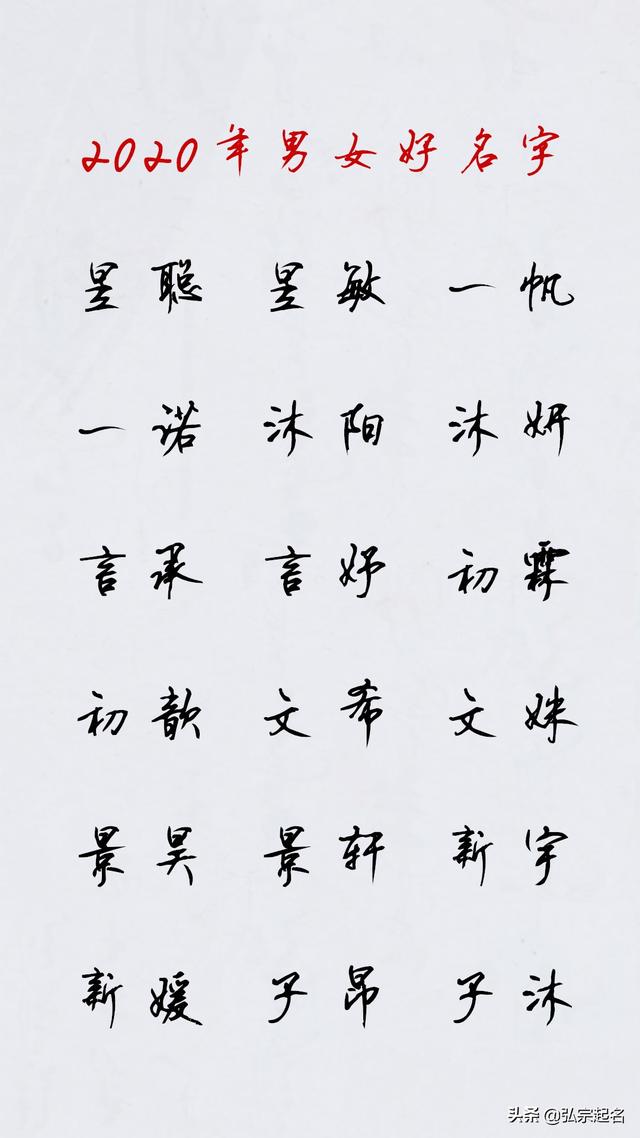 2020年男女好名字
昱聪 昱敏 一帆
一诺 沐阳 沐妍
言承 言妤 初霖
初歆 文希 文姝
景昊 景轩 新宇
新媛 子昂 子沐
头条 @弘宗起名